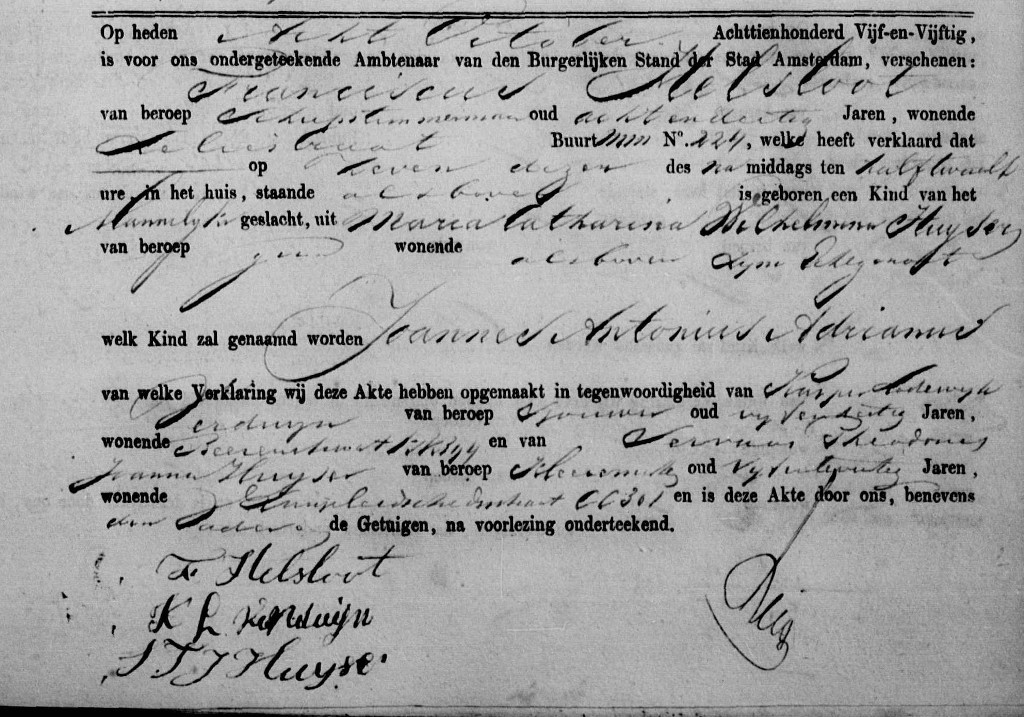 Op heden Acht October Achttienhonderd Vijf-en-Vijftig,
is voor ons ondergeteekende Ambtenaar van den Burgerlijken Stand der Stad Amsterdam, verschenen:
Franciscus Helsloot
van beroep Scheepstimmerman oud achtendertig Jaren, wonende
Buurt No. 224, welke heeft verklaard dat
op zeven dezer des na middags ten half twaalf
ure, in het huis, staande als boven is geboren een Kind van het
Mannelijk geslacht, uit Maria Catharina Wilhelmina Huyser
van beroep geen wonende als boven zijn Echtgenoot
welk Kind zal genaamd worden Joannes Antonius Adrianus
van welke Verklaring wij deze Akte hebben opgemaakt in tegenwoordigheid van Kasper Lodewijk
Verduyn van beroep Sjouwer oud vijfendertig Jaren,
wonende en van Servaas Theodorus
Joannes Huyser van beroep Kleermaker oud Vijfentwintig Jaren,
wonende OO 301 en is deze Akte door ons, benevens
den Vader & de Getuigen, na voorlezing onderteekend.
F Helsloot
K L Verduijn
S T J Huyser